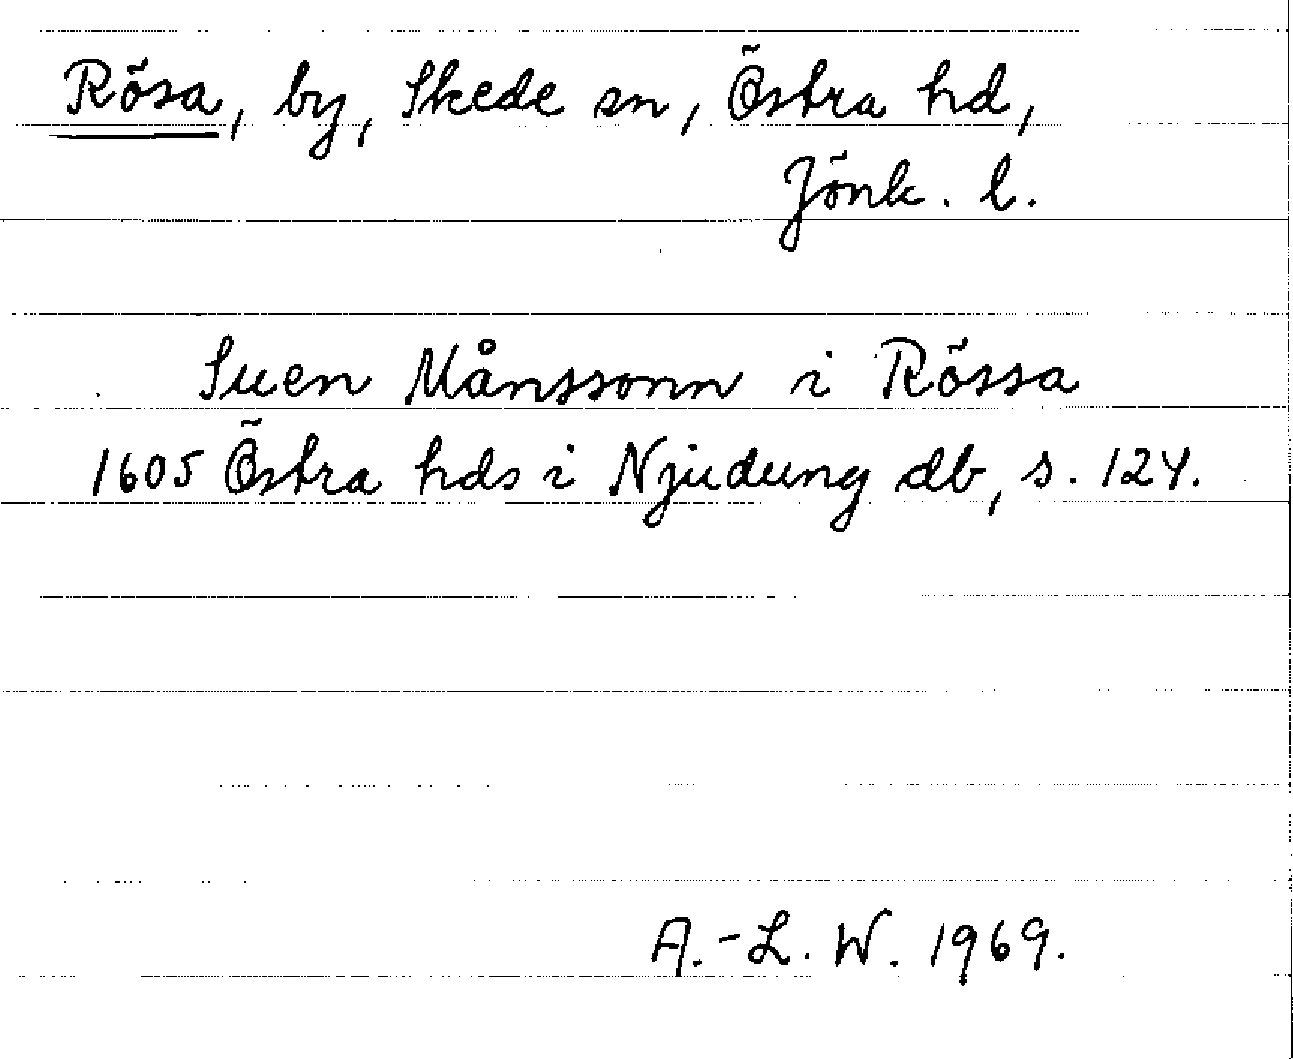 Rösa, by, Skede sn, Östra hd,
Jönk. l.
Suen Månssonn i Rössa
1605 Östra hds i Njudung db, s. 124.
A.-L. W. 1969.